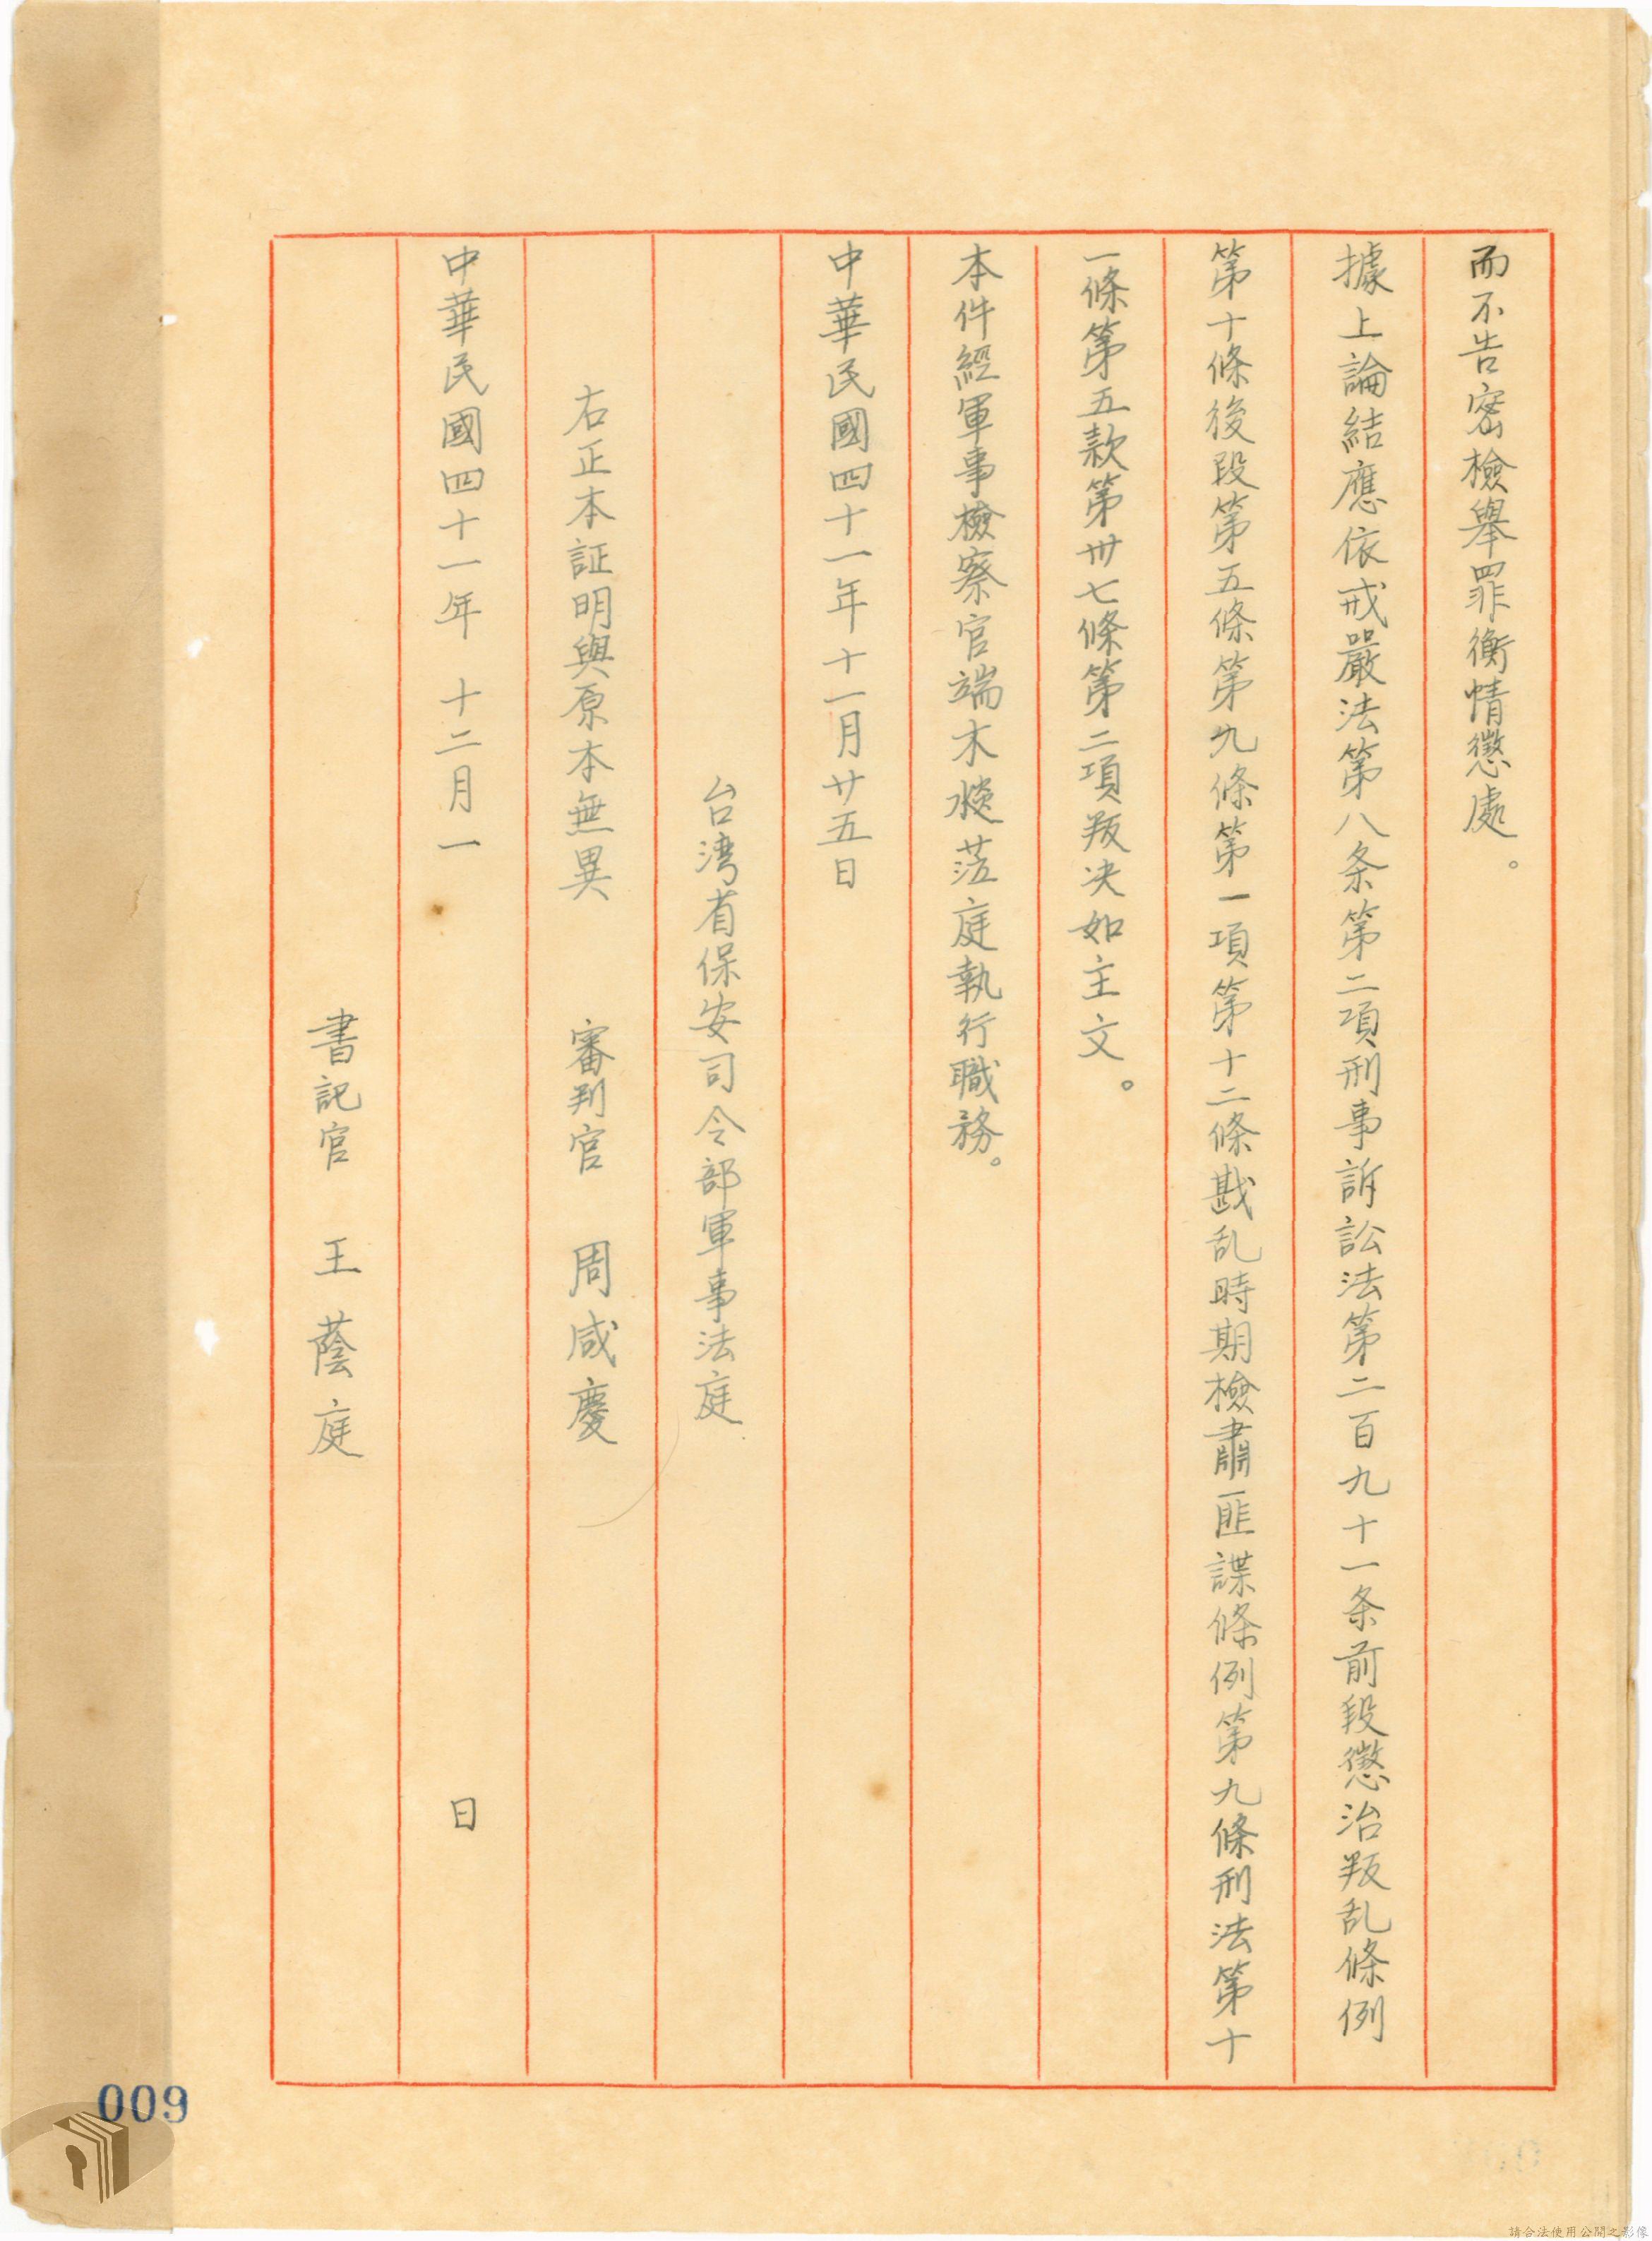 而不告密檢舉罪衡情懲處。
據上論結應依戒嚴法第八条第二項刑事訴訟法第二百九十一条前段懲治叛乱條例
第十條後段第五條第九條第一項第十二條戡乱時期檢肅匪諜條例第九條刑法第十
一條第五款第卅七條第二項叛决如主文。
本件經軍事檢察官端木棪蒞庭執行職務。
中華民國四十一年十一月廿五日
台湾省保安司令部軍事法庭
審判官 周咸慶
右正本証明與原本無異
中華民國四十一年 十二月一 日
書記官 王蔭庭
009
請合法使用公開之影像